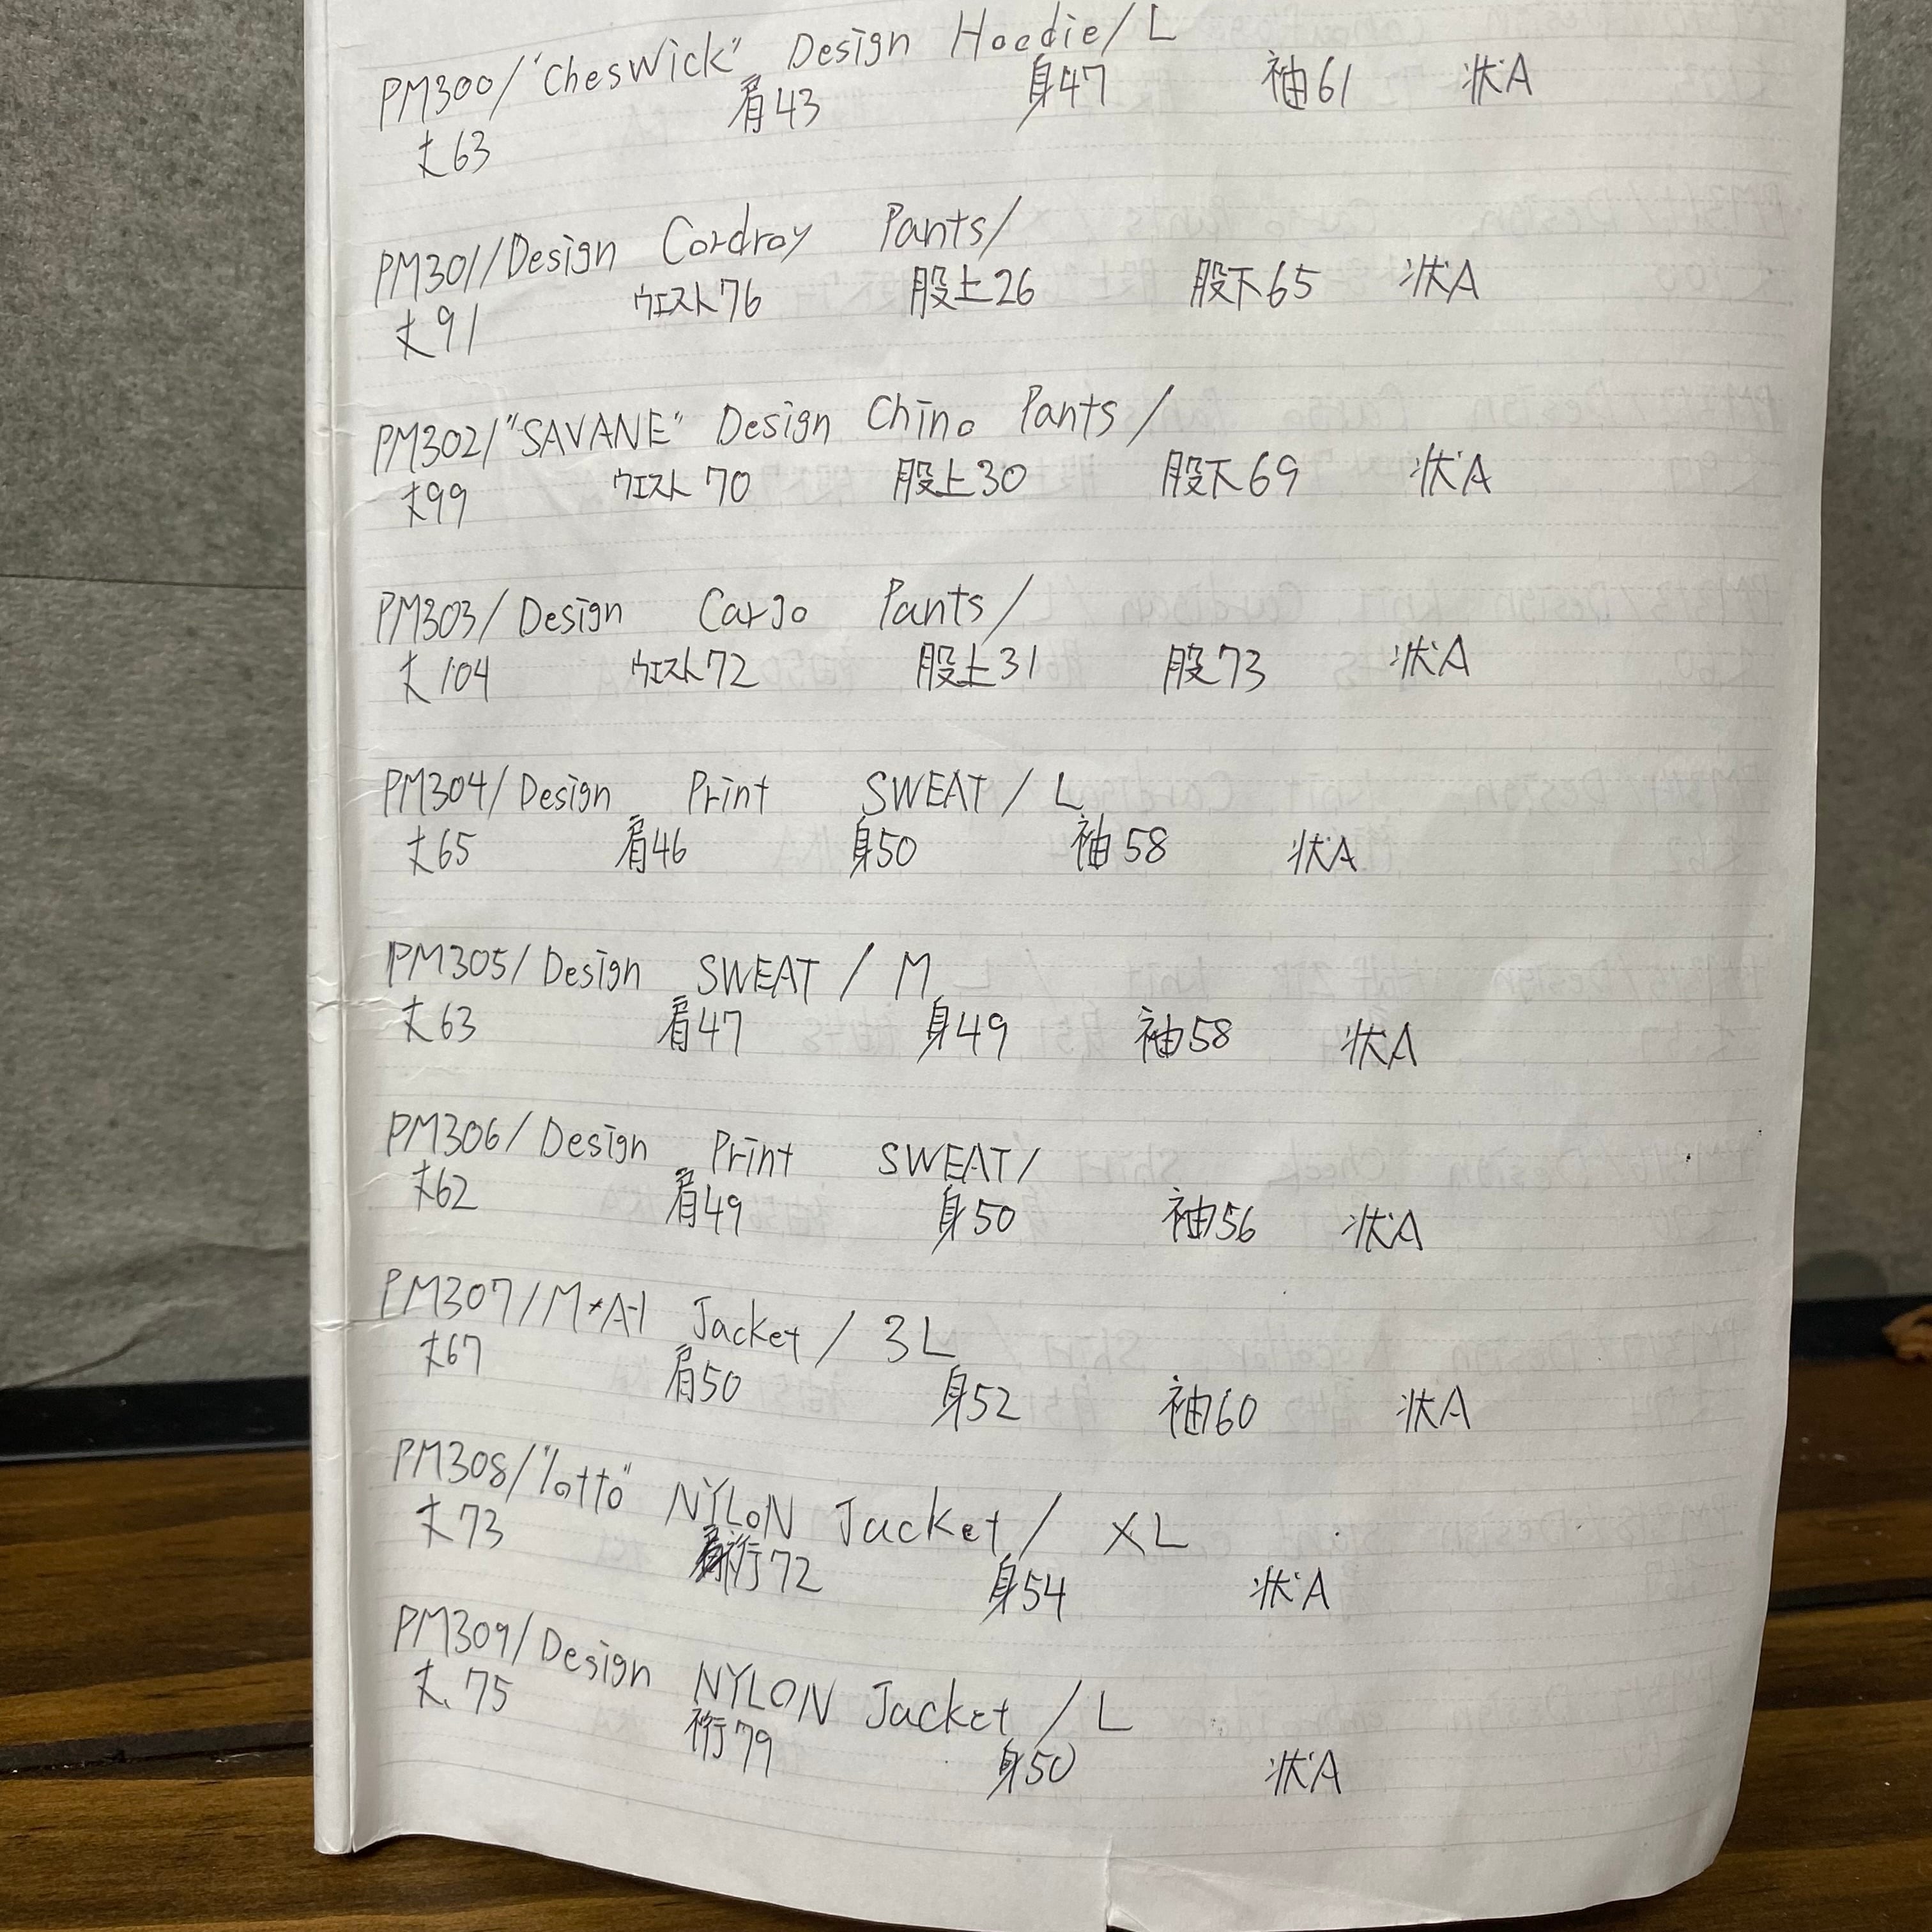 PM300/"Cheswick" Design Hoodie/L
丈63 肩43 身47 袖61 状A
PM301/Design Cordroy Pants/
丈91 ウエスト76 股上26 股下65 状A
PM302/"SAVANE" Design Chino Pants/
丈99 ウエスト70 股上30 股下69 状A
PM303/Design Cargo Pants/
丈104 ウエスト72 股上31 股73 状A
PM304/Design Print SWEAT/L
丈65 肩46 身50 袖58 状A
PM305/Design SWEAT/M
丈63 肩47 身49 袖58 状A
PM306/Design Print SWEAT/
丈62 肩49 身50 袖56 状A
PM307/M*A-1 Jacket/3L
丈67 肩50 身52 袖60 状A
PM308/"lotto" NYLON Jacket/XL
丈73 裄72 身54 状A
PM309/Design NYLON Jacket/L
丈75 裄79 身50 状A